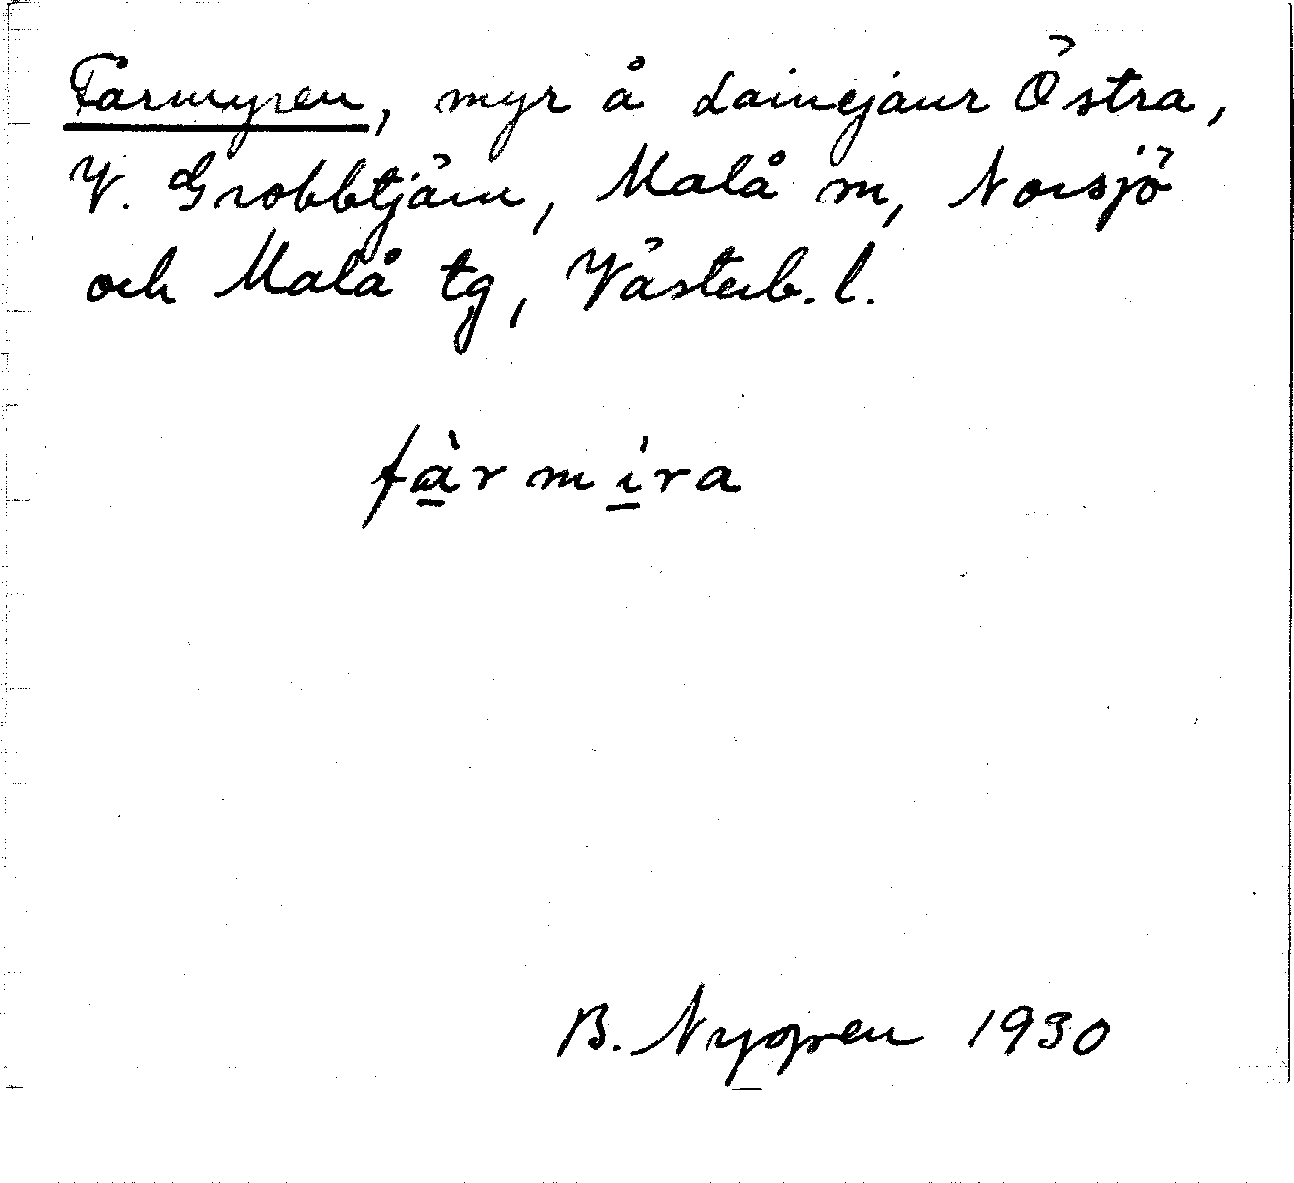 Fårmyren, myr å Lainejaur Östra,
V. Grobbtjärn, Malå sn, Norsjö
och Malå tg, Västerb. l.
fàrmíra
B. Nygren 1930